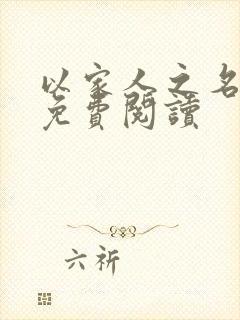 以家人之名
免費閱讀
六祈